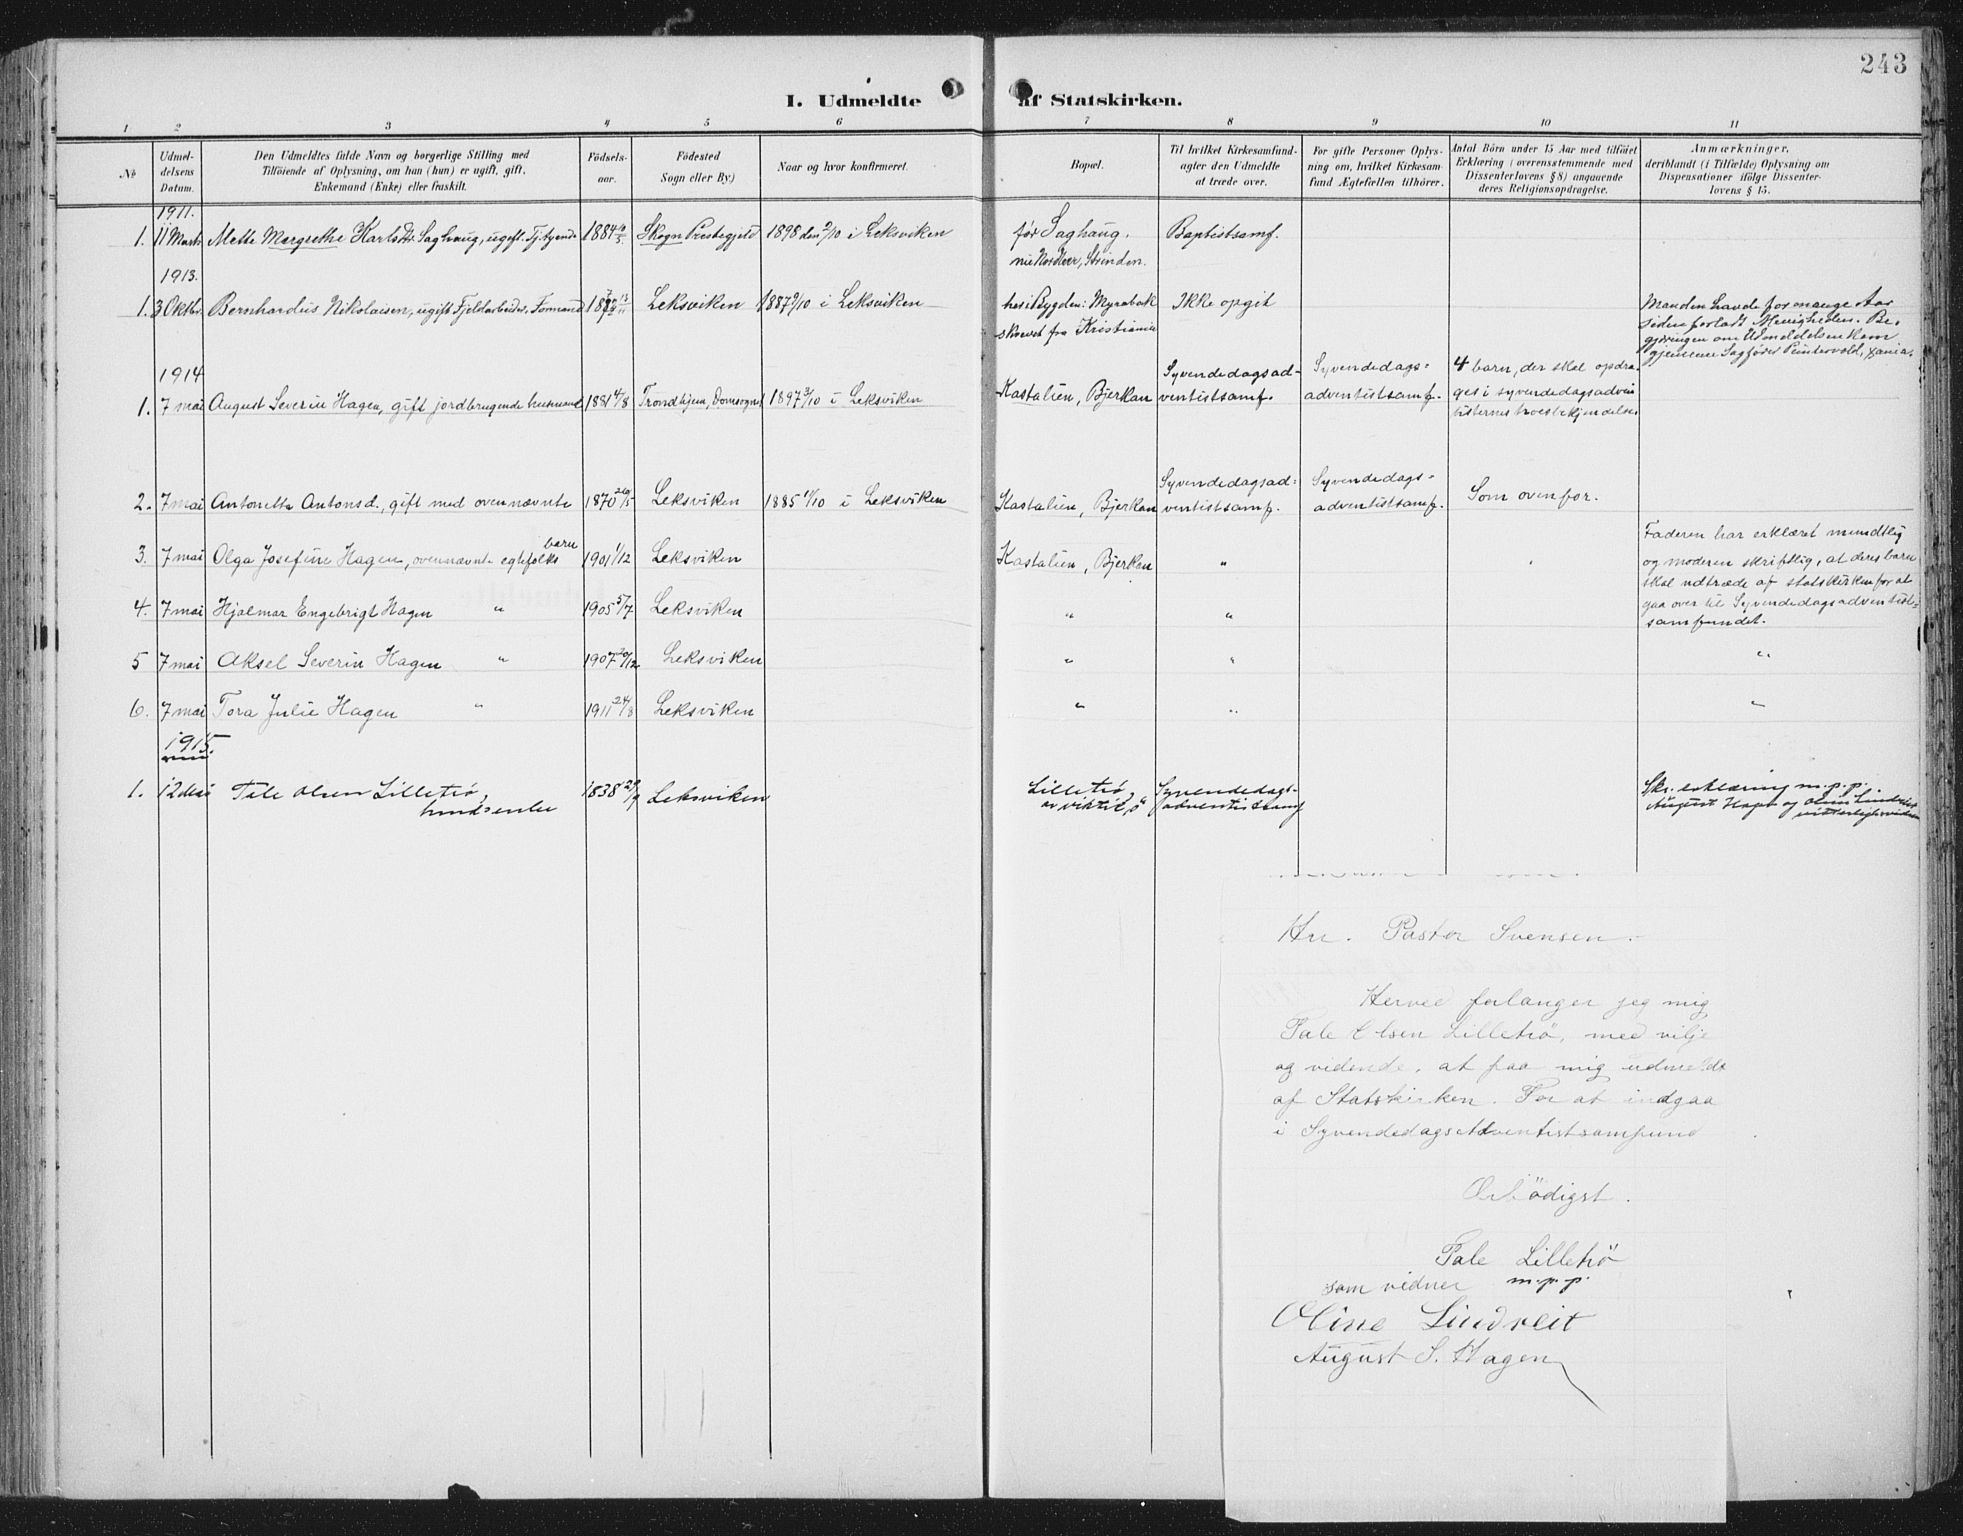 243
I. Udmeldte af Statskirken.
1 2 3 4 5 6 7 8 9 10 11
№
Udmel-
delsens
Datum.
Den Udmeldtes fulde Navn og borgerlige Stilling med
Tilföiende af Oplysning, om han (hun) er ugift, gift,
Enkemand (Enke) eller fraskilt.
Födsels-
aar.
Födested
Sogn eller By.)
Naar og hvor konfirmeret.
Bopæl.
Til hvilket Kirkesamfund
agter den Udmeldte
at træde over.
For gifte Personer Oplys-
ning om, hvilket Kirkesam-
fund Ægtefællen tilhörer.
Antal Börn under 15 Aar med tilföiet
Erklæring (overensstemmende med
Dissenterlovens § 8) angaaende
deres Religionsopdragelse.
Anmærkninger,
deriblandt (i Tilfælde) Oplysning om
Dispensationer ifölge Dissenter-
lovens § 15.
1911.
1. 11 Marts Mette Margrethe Karlsdtr. Saghaug, ugift. Tj.tyende 1884 Skogn Prestegjeld 1898 den 2/10 i Leksviken før Saghaug, Baptistsamf.
nu Nordtvær, Strinden.
1913.
1. 3 Oktbr. Bernhardus Nikolaisen, ugift Fjeldarbeider, Formand Leksviken 1887 9/10 i Leksviken her i Bygden: Myrabak Ikke opgit
skrevet fra Kristiania
Manden havde for mange Aar
siden forladt Menigheden. Be-
gjæringen om Udmeldelsen kom
gjennem Sagfører
1914
1. 7 mai August Severin Hagen, gift jordbrugende husmand 1881 4/8 Trondhjem, Domsogne 1897 3/10 i Leksviken Kastalien, Bjerkan
Syvendedagsad-
ventistsamf.
Syvendedags-
adventistsamf.
4 barn, der skal opdra-
ges i syvendedagsadven
tisternes troesbekjendelse.
2. 7 mai Antonette Antonsd., gift med ovennævnte 1870 20/5 Leksviken 1885 11/10 i Leksviken Kastalien, Bjerkan
Syvendedagsad-
ventistsamf.
Syvendedags-
adventistsamf.
Som ovenfor.
3. 7 mai Olga Josefine Hagen, ovennævnte egtefolks barn 1901 1/12 Leksviken Kastalien, Bjerkan "
Faderen har erklæret mundtlig
og moderen skriftlig, at deres barn
skal udtræde af statskirken for at
gaa over til Syvendedagsadventist-
samfundet.
4. 7 mai Hjalmar Engebrigt Hagen " 1905 5/7 Leksviken " "
5 7 mai Aksel Severin Hagen " 1907 20/12 Leksviken " " "
6. 7 mai Tora Julie Hagen " 1911 24/8 Leksviken " " "
1915.
1. 12 Tale Olsen Lilletrø, 1838 29/9 Leksviken Lilletrø,
Syvendedags-
adventistsamf
Skr. erklæring m.p.p.
August Hagen og Oline Lindveit
Hr. Pastor Svensen.
Herved forlanger jeg mig
Tale Olsen Lilletrø, med vilje
og vidende, at faa mig udmeldt
af Statskirken. For at indgaa
i Syvendedags Adventistsamfund
Ærbödigst.
Tale Lilletrö
som vidner m.p.p.
Oline Lindveit
August S. Hagen